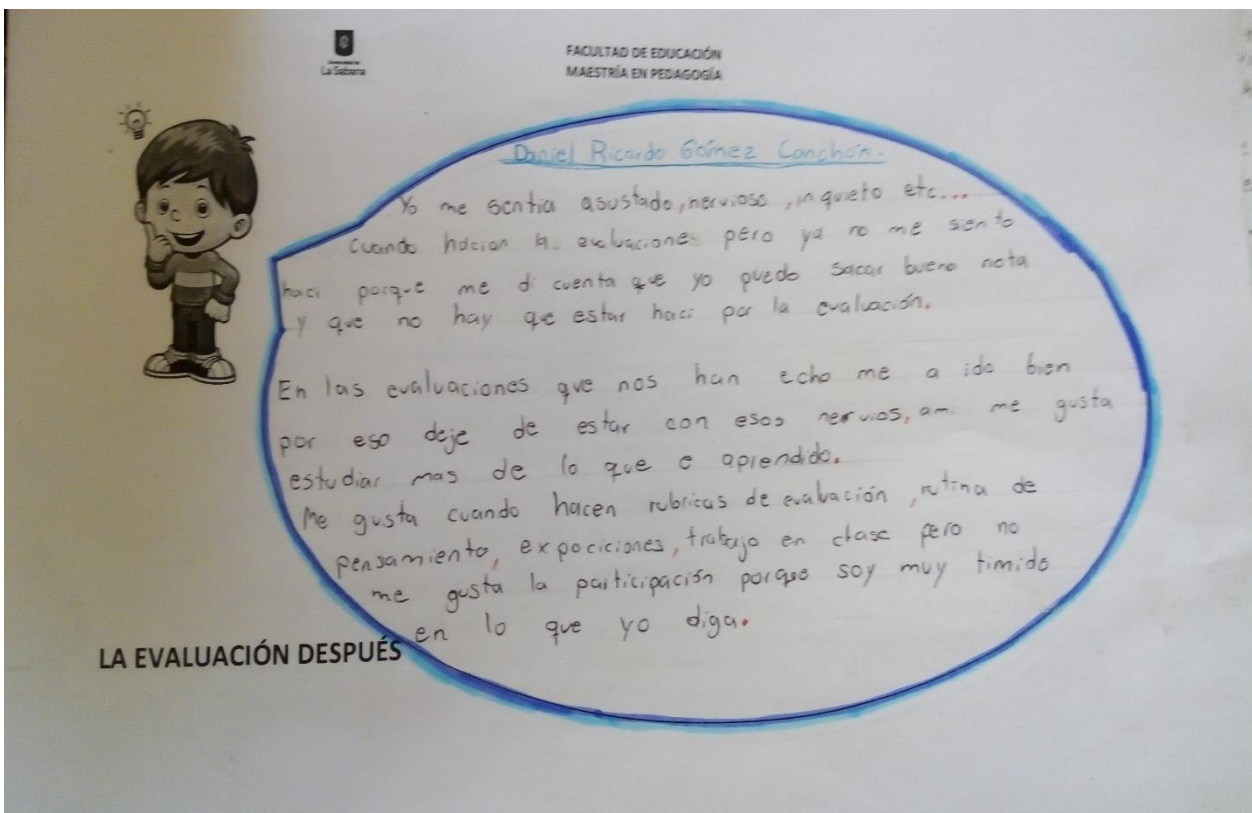 La Sabana
FACULTAD DE EDUCACIÓN
MAESTRÍA EN PEDAGOGÍA
Daniel Ricardo Gómez Canchón.
Yo me sentia asustado, nervioso, in quieto etc...
cuando hacian la evaluaciones pero ya no me siento
haci porque me di cuenta que yo puedo sacar bueno nota
y que no hay que estar haci por la evaluación.
En las evaluaciones que nos han echo me a ido bien
por eso deje de estar con esos nervios, ami me gusta
estudiar mas de lo que e aprendido.
Me gusta cuando hacen rubricas de evaluación, rutina de
pensamiento, expociciones, trabajo en clase pero no
me gusta la participación porque soy muy timido
en lo que yo diga.
LA EVALUACIÓN DESPUÉS